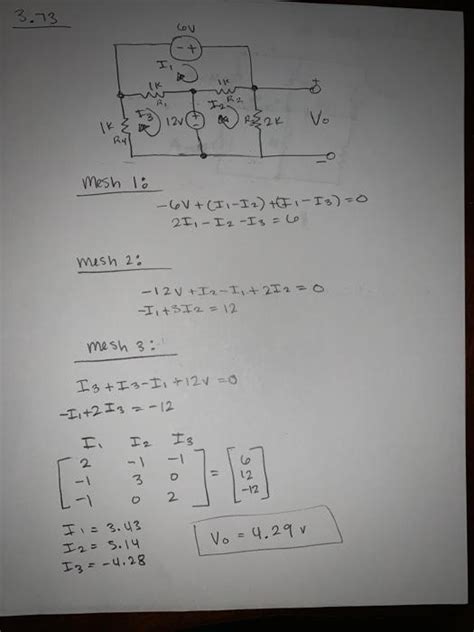 3.73
6V
- +
I1
1K
1K
R1
R2
I3
I2
1K
R4
12V
+
-
R3
2K
+
Vo
-
mesh 1:
-6V+(I1-I2)+(I1-I3)=0
2I1-I2-I3=6
mesh 2:
-12V+I2-I1+2I2=0
-I1+3I2=12
mesh 3:
I3+I3-I1+12V=0
-I1+2I3=-12
I1 I2 I3
[2 -1 -1] [6]
[-1 3 0] = [12]
[-1 0 2] [-12]
I1=3.43
I2=5.14
I3=-4.28
Vo=4.29v